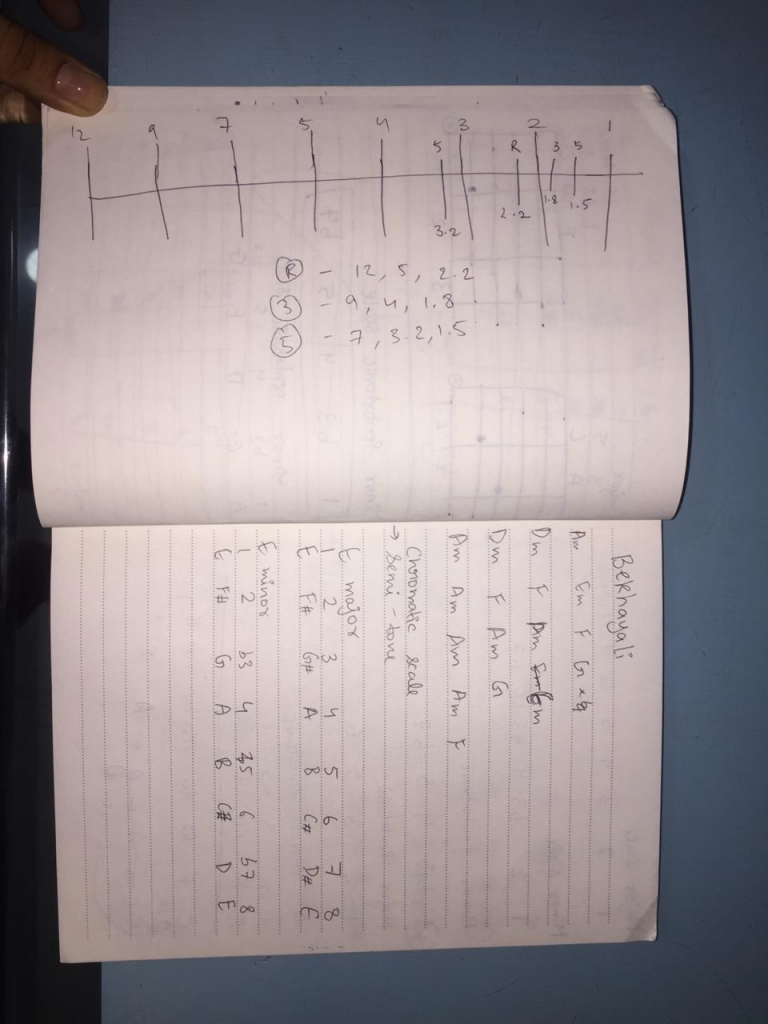 12 9 7 5 4 3 2 1
5 R 3 5
3.2 2.2 1.8 1.5
R - 12, 5, 2.2
3 - 9, 4, 1.8
5 - 7, 3.2, 1.5
Bekhayali
Am Em F G x4
Dm F Am
Dm F Am G
Am Am Am Am F
Chromatic scale
→ semi-tone
E major
1 2 3 4 5 6 7 8
E F# G# A B C# D# E
E minor
1 2 b3 4 5 6 b7 8
E F# G A B C# D E